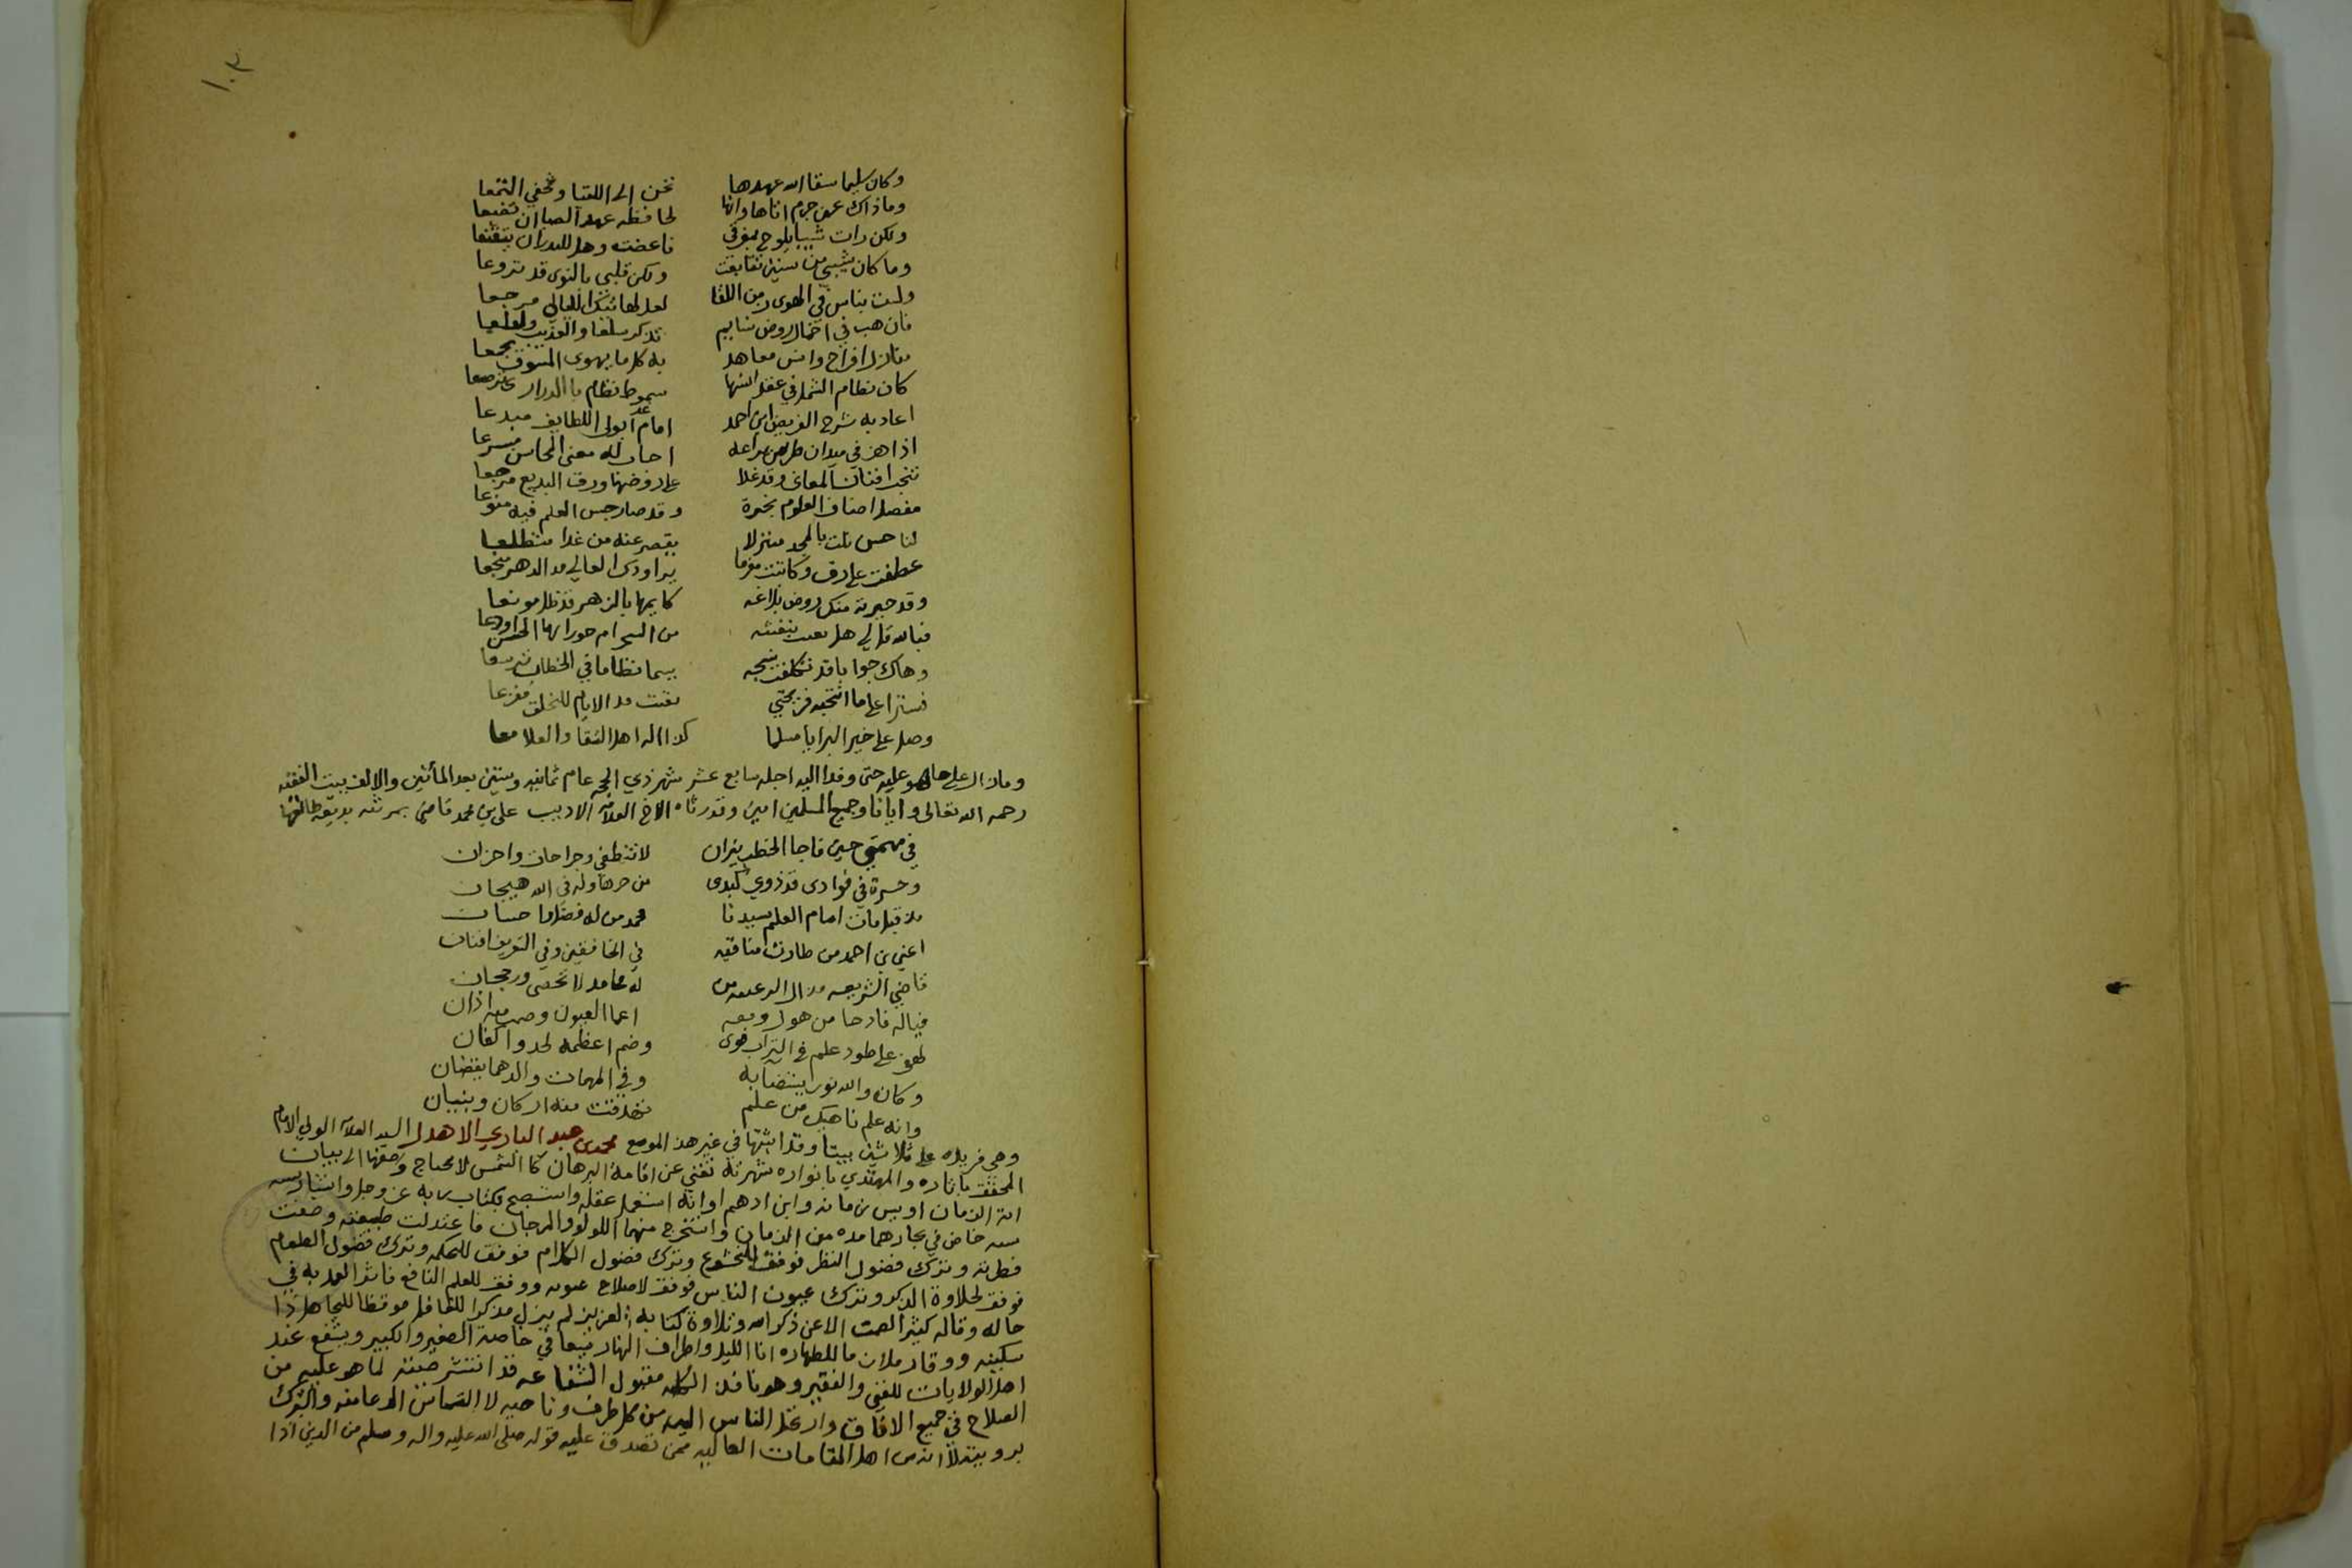 ١٠٣
وكان سليما سقا الله عهدها نحن الى اللقيا وتخفي التمنعا
وما ذاك عن جرم اتاها وانها لحافظه عهد الصبا ان تضيعا
ولكن رات شيبا يلوح بمفرقي فاعضت وهل للبدر ان يتقنعا
وما كان شيبي من سنين تتابعت ولكن قلبي بالنوى قد تروعا
ولست بناس في الهوى زمن اللقا لعل لهاتيك الليالي مرجعا
فان هب في اخمال روض نسايم تذكر سلعا والعذيب ولعلعا
منازل افراح وانس معاهد به كل ما يهوى المشوق تجمعا
كان نظام الشمل في عقد انسها سموط نظام بالدراري ترصعا
اعاد به شرح القريض ابن احمد امام غدا بولي اللطايف مبدعا
اذا هز في ميدان طرس يراعه اجاب له معنى المحاسن مسرعا
افنان المعاني وقد علا على روضها ورق البديع مرجعا
مفصل اصناف العلوم بخبرة وقد صار جنس العلم فيه منوعا
لنا حسن نلت بالمجد منزلا يقصر عنه من غدا متطلعا
عطفت على رق وكاتبت مغرما
وقد حيرته منك روض بلاغه كما بها بالزهر قد ظل مونعا
فبالله قل لي هل بعثت بنفثه من السحر ام حورا بها الحسن اودعا
وهاك جوابا قد تكلفت نسجه نظاما في الخطاب
فسترا على ما انتجته قريحتي بقيت مدا الايام للخلق مفزعا
وصل على خير البرايا مسلما كذا الال اهل التقا والعلا معا
وما زال على حاله هو عليه حتى وفدا اليه اجله سابع عشر شهر ذي الحجه عام ثمانيه وستين بعد المأتين والالف ببيت الفقيه
رحمه الله تعالى وايانا وجميع المسلمين امين وقد رثاه الاخ العلامه الاديب علي بن محمد قاضي بمرثيه بديعه طالعها
في مهجتي حين فاجا الخطب نيران لا تنطفي وجراحات واحزان
وحسرة في فوادي قد ذوي كبدى من حرها وله في الله هيجان
مذ قيل مات امام العلم سيدنا محمد من له فضل واحسان
اعني بن احمد من طارت مناقبه في الخافقين وفي التعريف افنان
قاضي الشريعه من له محامد لا تحصى ورجحان
فياله فادحا من هول وقعه اعما العيون وصمت منه اذان
لهفي على طود علم في التراب هوى وضم اعظمه لحد واكفان
وكان والله نورا يستضا به وفي المهمات والدهما يقضان
وانه علم ناهيك من علم تهدمت منه اركان وبنيان
وهي فريده على ثلاثين بيتا وقد اثبتها في غير هذ الموضع محمد بن عبد الباري الاهدل السيد العلامه الولي الامام
المحقق باثاره والمهتدي بانواره شهرته تغني عن اقامة البرهان كالشمس لا يحتاج وصفها الى بيان
انه الزمان اويس زمانه وابن ادهم اوانه استعمل عقله واستصبح بكتاب ربه عز وجل
خاض في بحارهما مده من الزمان واستخرج منهما اللولو والمرجان فاعتدلت طبيعته وصفت
فطرته وترك فضول النظر فوفق للخشوع وترك فضول الكلام فوفق للحكمه وترك فضول الطعام
فوفق لحلاوة الذكر وترك عيوب الناس فوفق لاصلاح عيوبه ووفق للعلم النافع فاثر العمل به في
حاله وقاله كثير الصمت الا عن ذكر الله وتلاوة كتابه العزيز لم يزل مذكرا للغافل موقظا للجاهل ذا
سكينه ووقار ملازما للطهاره انا الليل واطراف النهار في حاجة الصغير والكبير ويشفع عند
اهل الولايات للغني والفقير وهو نافذ الكلمه مقبول الشفاعه قد انتشر صيته لما هو عليه من
الصلاح في جميع الافاق وارتحل الناس اليه من كل طرف وناحيه لالتماس الدعا منه والتبرك
برويته لانه من اهل المقامات العاليه ممن تصدق عليه قوله صلى الله عليه واله وسلم من الذين اذا